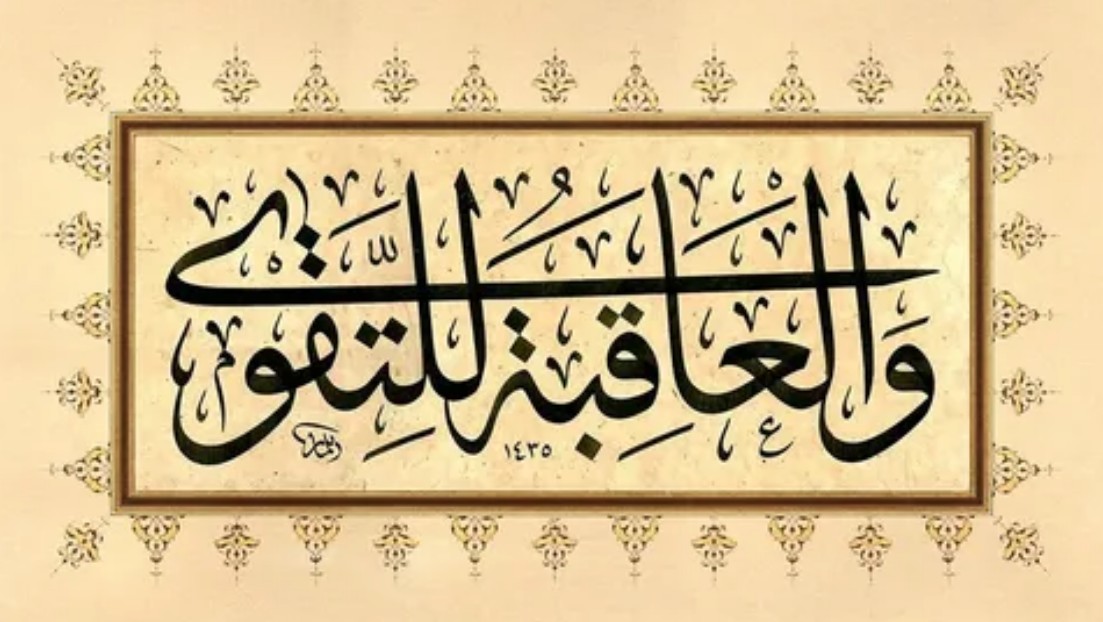 وَالْعَاقِبَةُ لِلتَّقْوَى
١٤٣٥